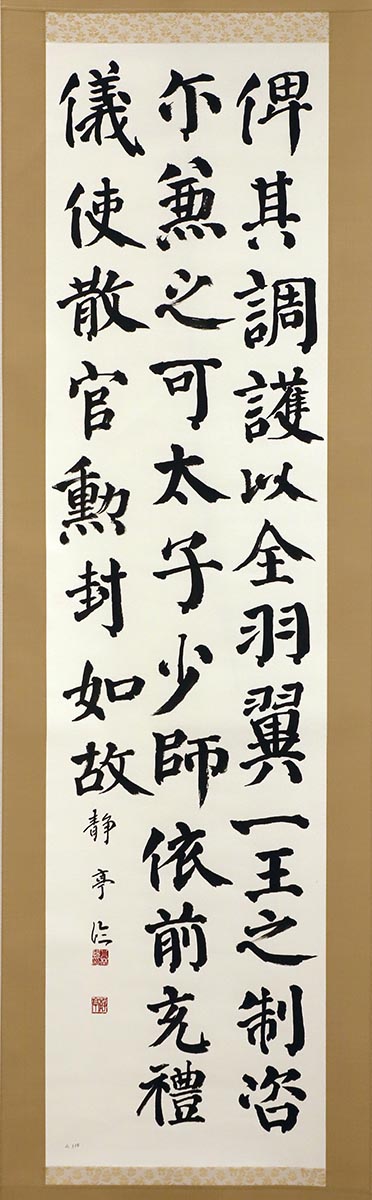 俾其調護以全羽翼一王之制咨
尓兼之可太子少師依前充禮
儀使散官勲封如故
静亭臨